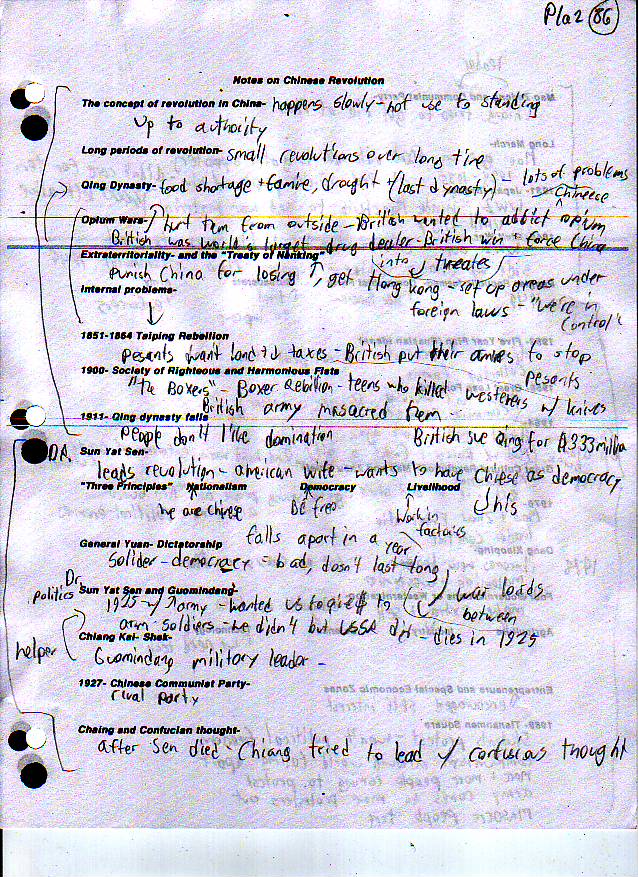 Pla2 86
Notes on Chinese Revolution
The concept of revolution in China- happens slowly - not use to standing
up to authority
Long periods of revolution- small revolutions over long time
Qing Dynasty- food shortage + famire, drought (last dynasty) - lots of problems
Chineece
Opium Wars- Hurt tem from outside - British wanted to addict opium
British was world's larget drug dealer - British win + force China
Extraterritoriality- and the "Treaty of Nanking" into treates
Punish China for losing, get Hong Kong - set up areas under
Internal problems- foreign laws - "we're in
control"
1851-1864 Taiping Rebellion
pesants want land + ↓ taxes - British put their armies to stop
pesants
1900- Society of Righteous and Harmonious Fists
"The Boxers" - Boxer Rebilion - teens who killed westeners w/ knives
British army masacred them
1911- Qing dynasty falls
people don't like domination British sue Qing for $333 million
DR. Sun Yat Sen-
leads revolution - american wife - wants to have Chiese as democracy
"Three Principles" Nationalism Democracy Livelihood
we are chinese Be free Work in
factories
his
General Yuan- Dictatorship falls apart in a
year
Solider - democracy = bad, doesn't last long
Dr.
politics
Sun Yat Sen and Guomindang- war lords
1925 - w/ army - wanted us to give $ to between
arm soldiers - we didn't but USSR did - dies in 1925
helper
Chiang Kai- Shek-
Guomindang military leader -
1927- Chinese Communist Party-
rival party
Chaing and Confucian thought-
after Sen died - Chiang tried to lead w/ confusious thought